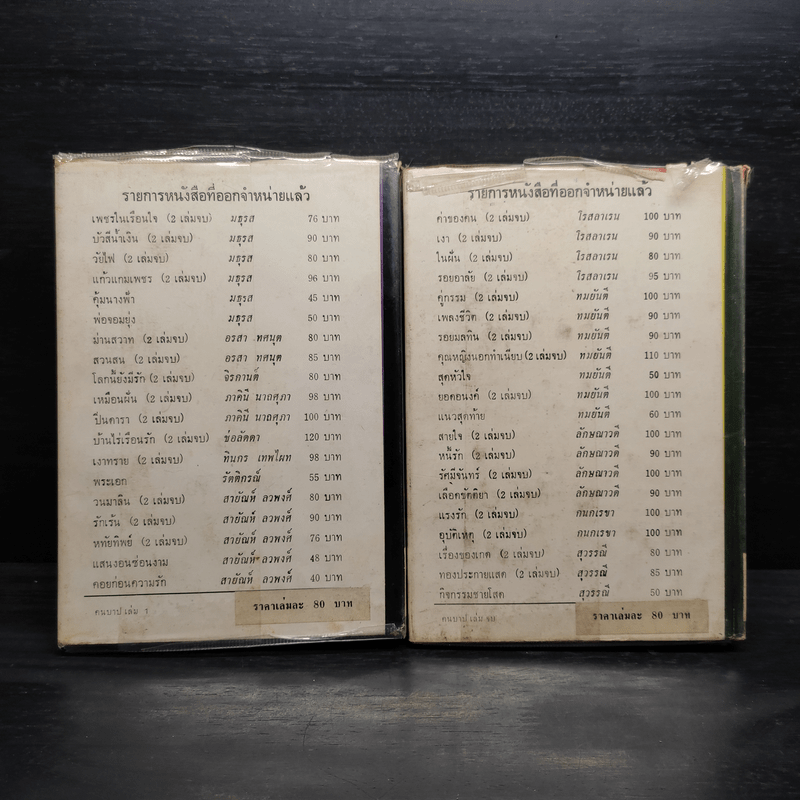 รายการหนังสือที่ออกจำหน่ายแล้ว
เพชรในเรือนใจ (2 เล่มจบ) มธุรส 76 บาท
บัวสีน้ำเงิน (2 เล่มจบ) มธุรส 90 บาท
วัยไฟ (2 เล่มจบ) มธุรส 80 บาท
แก้วแกมเพชร (2 เล่มจบ) มธุรส 96 บาท
คุ้มนางฟ้า มธุรส 45 บาท
พ่อจอมยุ่ง มธุรส 50 บาท
ม่านสวาท (2 เล่มจบ) อรสา ทศนุต 80 บาท
สวนสน (2 เล่มจบ) อรสา ทศนุต 85 บาท
โลกนี้ยังมีรัก (2 เล่มจบ) จิรกานต์ 80 บาท
เหมือนฝัน (2 เล่มจบ) ภาคินี นาถศุภา 98 บาท
ปิ่นดารา (2 เล่มจบ) ภาคินี นาถศุภา 100 บาท
บ้านไร่เรือนรัก (2 เล่มจบ) ช่อลัดดา 120 บาท
เงาทราย (2 เล่มจบ) ทินกร เทพไผท 98 บาท
พระเอก รัตติกรณ์ 55 บาท
วนมาลิน (2 เล่มจบ) สายัณห์ ลวพงศ์ 80 บาท
รักเร้น (2 เล่มจบ) สายัณห์ ลวพงศ์ 90 บาท
หทัยทิพย์ (2 เล่มจบ) สายัณห์ ลวพงศ์ 76 บาท
แสนงอนซ่อนงาม สายัณห์ ลวพงศ์ 48 บาท
คอยก่อนความรัก สายัณห์ ลวพงศ์ 40 บาท
คนบาป เล่ม 1 ราคาเล่มละ 80 บาท
รายการหนังสือที่ออกจำหน่ายแล้ว
ค่าของคน (2 เล่มจบ) โรสลาเรน 100 บาท
เงา (2 เล่มจบ) โรสลาเรน 90 บาท
ในฝัน (2 เล่มจบ) โรสลาเรน 80 บาท
รอยอาลัย (2 เล่มจบ) โรสลาเรน 95 บาท
คู่กรรม (2 เล่มจบ) ทมยันตี 100 บาท
เพลงชีวิต (2 เล่มจบ) ทมยันตี 90 บาท
รอยมลทิน (2 เล่มจบ) ทมยันตี 90 บาท
คุณหญิงนอกทำเนียบ (2 เล่มจบ) ทมยันตี 110 บาท
สุดหัวใจ ทมยันตี 50 บาท
ยอดอนงค์ (2 เล่มจบ) ทมยันตี 100 บาท
แนวสุดท้าย ทมยันตี 60 บาท
สายใจ (2 เล่มจบ) ลักษณาวดี 100 บาท
หนี้รัก (2 เล่มจบ) ลักษณาวดี 90 บาท
รัศมีจันทร์ (2 เล่มจบ) ลักษณาวดี 100 บาท
เลือดขัตติยา (2 เล่มจบ) ลักษณาวดี 90 บาท
แรงรัก (2 เล่มจบ) กนกเรขา 100 บาท
อุบัติเหตุ (2 เล่มจบ) กนกเรขา 100 บาท
เรื่องของเกด (2 เล่มจบ) สุวรรณี 80 บาท
ทองประกายแสด (2 เล่มจบ) สุวรรณี 85 บาท
กิจกรรมชายโสด สุวรรณี 50 บาท
คนบาป เล่ม จบ ราคาเล่มละ 80 บาท